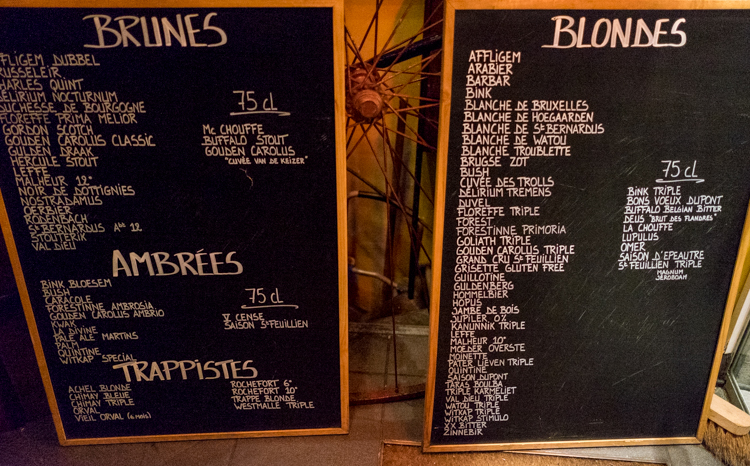 BRUNES
FFLIGEM DUBBEL
RUSSELEIR
HARLES QUINT
DELIRIUM NOCTURNUM
DUCHESSE DE BOURGOGNE
FLOREFFE PRIMA MELIOR
GORDON SCOTCH
GOUDEN CAROLUS CLASSIC
GULDEN DRAAK
HERCULE STOUT
LEFFE
MALHEUR 12°
NOIR DE DOTTIGNIES
NOSTRADAMUS
OERBIER
RODENBACH
ST BERNARDUS ABT 12
STOUTERIK
VAL DIEU
75 CL
MC CHOUFFE
BUFFALO STOUT
GOUDEN CAROLUS
"CUVÉE VAN DE KEIZER"
AMBRÉES
BINK BLOESEM
BUSH
CARACOLE
FORESTINNE AMBROSIA
GOUDEN CAROLUS AMBRIO
KWAK
LA DIVINE
PALE ALE MARTINS
PALM
QUINTINE
WITKAP SPECIAL
75 CL
V CENSE
SAISON ST FEUILLIEN
TRAPPISTES
ACHEL BLONDE
CHIMAY BLEUE
CHIMAY TRIPLE
ORVAL
VIEIL ORVAL (6 MOIS)
ROCHEFORT 6°
ROCHEFORT 10°
TRAPPE BLONDE
WESTMALLE TRIPLE
BLONDES
AFFLIGEM
ARABIER
BARBAR
BINK
BLANCHE DE BRUXELLES
BLANCHE DE HOEGAARDEN
BLANCHE DE ST BERNARDUS
BLANCHE DE WATOU
BLANCHE TROUBLETTE
BRUGSE ZOT
BUSH
CUVÉE DES TROLLS
DELIRIUM TREMENS
DUVEL
FLOREFFE TRIPLE
FOREST
FORESTINNE PRIMORIA
GOLIATH TRIPLE
GOUDEN CAROLUS TRIPLE
GRAND CRU ST FEUILLIEN
GRISETTE GLUTEN FREE
GUILLOTINE
GULDENBERG
HOMMELBIER
HOPUS
JAMBE DE BOIS
JUPILER 0%
KANUNNIK TRIPLE
LEFFE
MALHEUR 10°
MOEDER OVERSTE
MOINETTE
PATER LIEVEN TRIPLE
QUINTINE
SAISON DUPONT
TARAS BOULBA
TRIPLE KARMELIET
VAL DIEU TRIPLE
WATOU TRIPLE
WITKAP TRIPLE
WITKAP STIMULO
XX BITTER
ZINNEBIR
75 CL
BINK TRIPLE
BONS VOEUX DUPONT
BUFFALO BELGIAN BITTER
DEUS "BRUT DES FLANDRES"
LA CHOUFFE
LUPULUS
OMER
SAISON D'EPEAUTRE
ST FEUILLIEN TRIPLE
MAGNUM
JEROBOAM